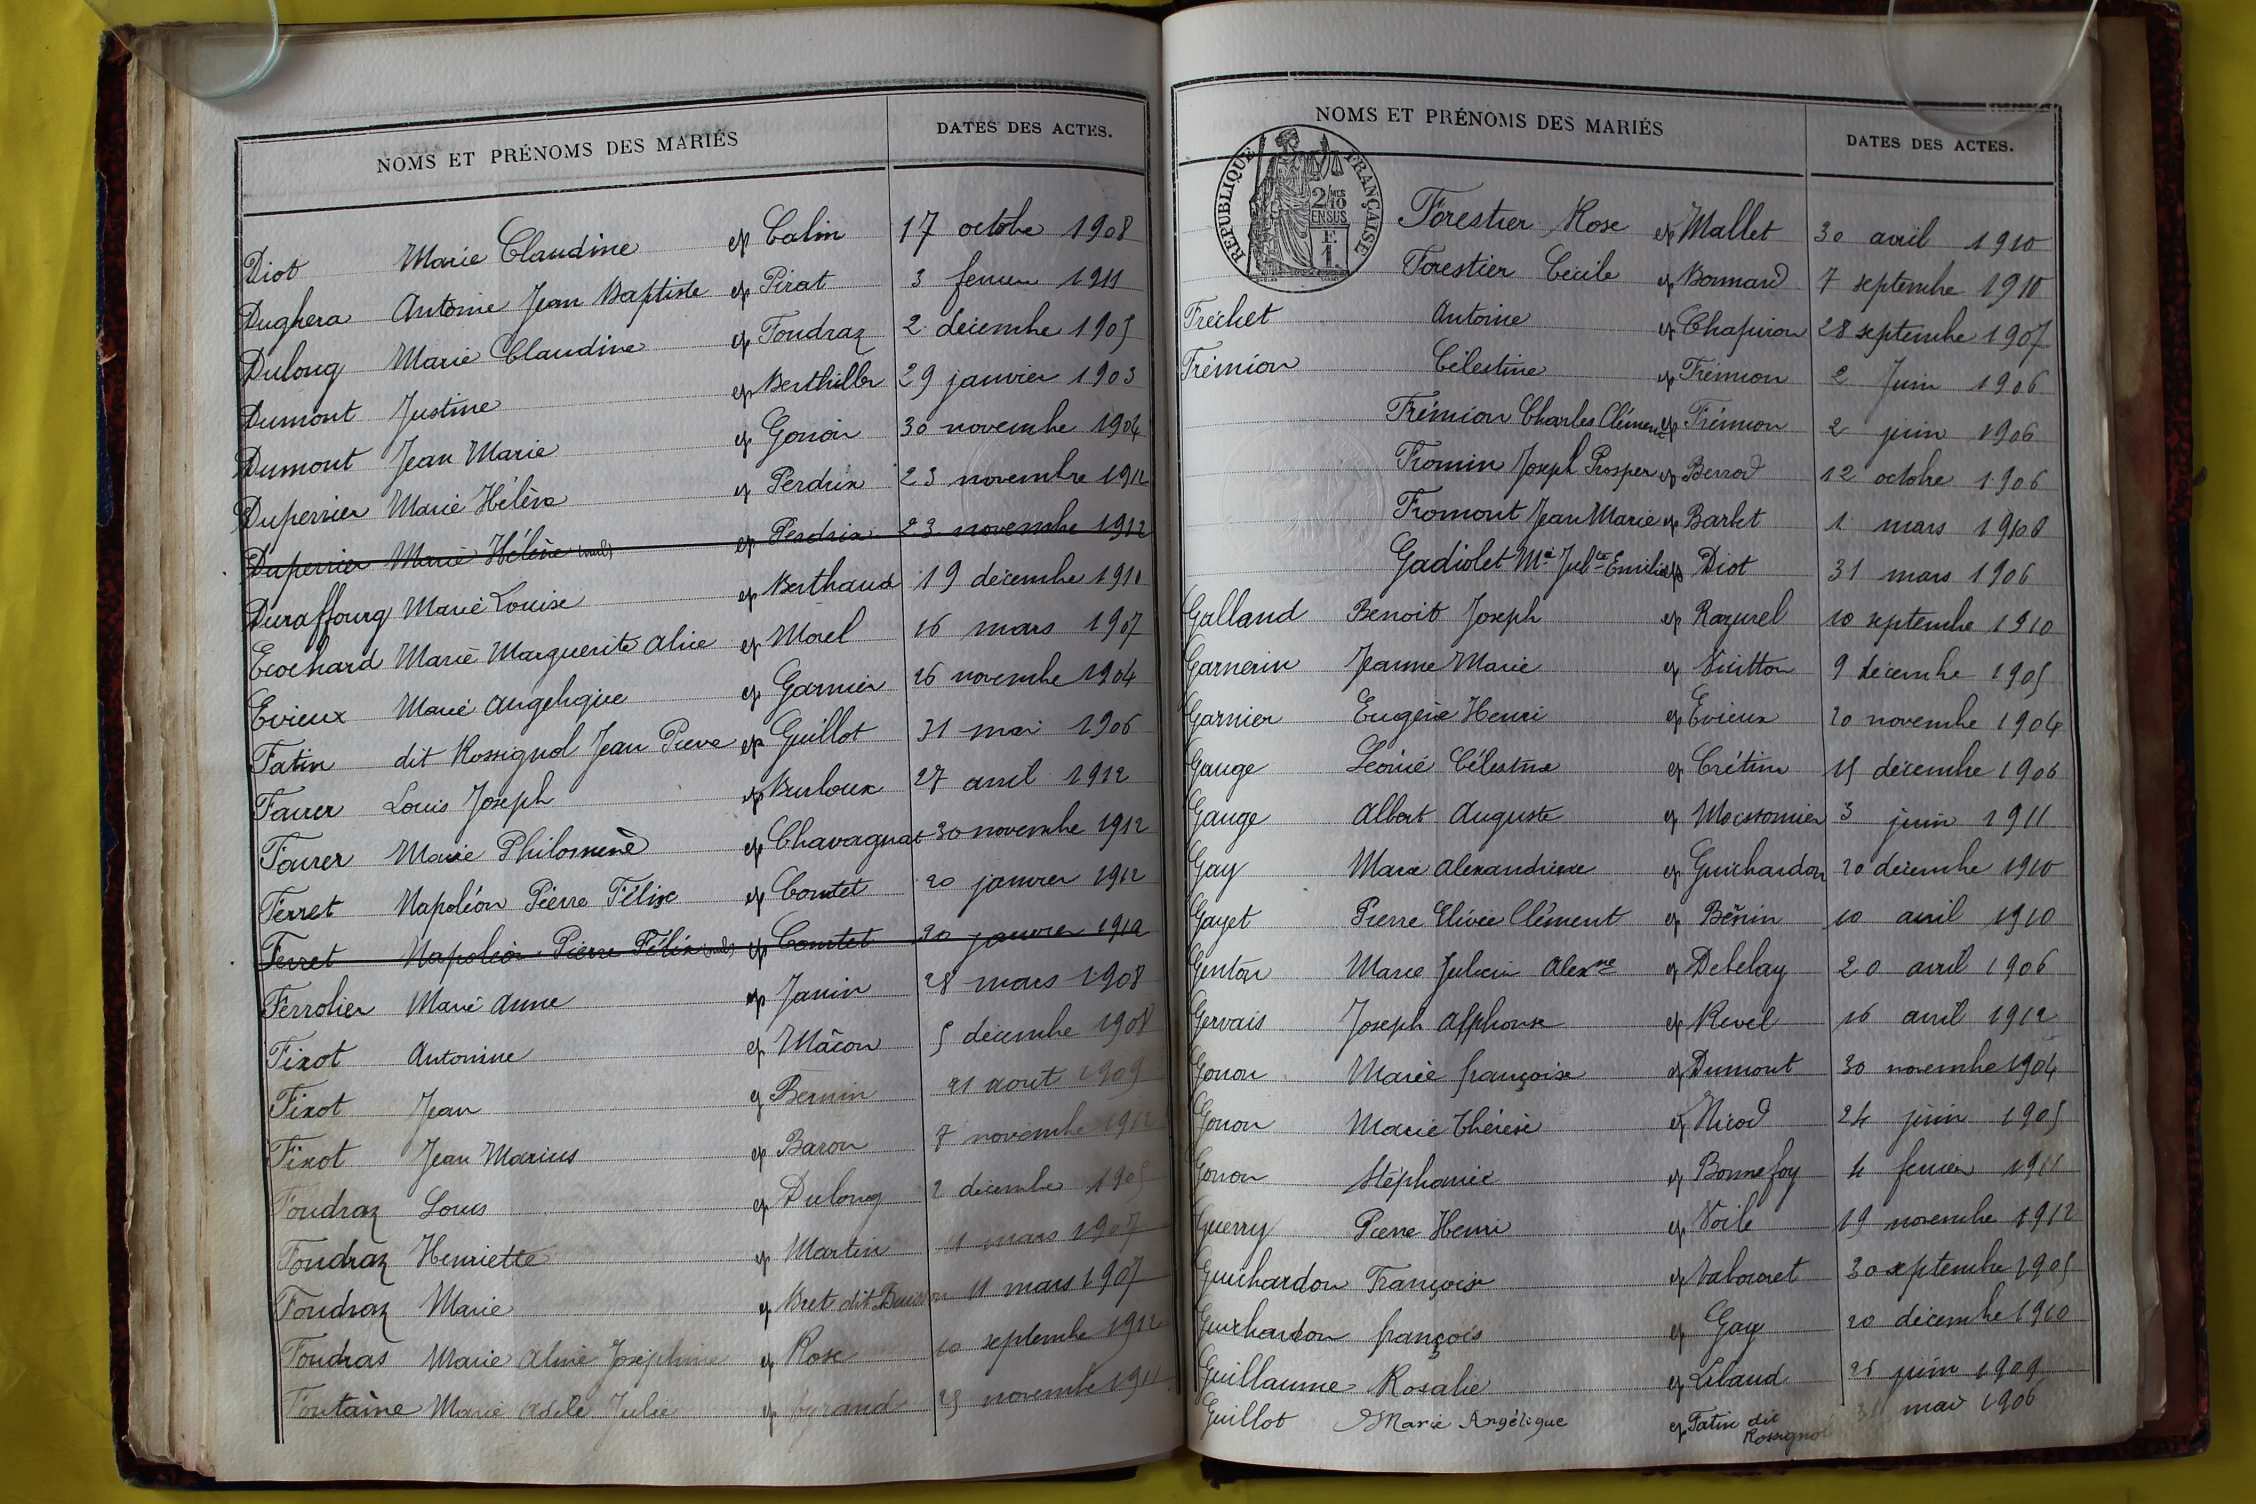 NOMS ET PRÉNOMS DES MARIÉS DATES DES ACTES.
Diot Marie Claudine ep Calin 17 octobre 1908
Dughera Antoine Jean Baptiste ep Pirat 3 fevrier 1911
Dulong Marie Claudine ep Foudraz 2 décembre 1905
Dumont Justine ep Berthillier 29 janvier 1903
Dumont Jean Marie ep Gonon 30 novembre 1904
Duperrier Marie Hélène ep Perdrix 23 novembre 1912
Duperrier Marie Hélène (nul) ep Perdrix 23 novembre 1912
Duraffourg Marie Louise ep Berthaud 19 décembre 1910
Ecochard Marie Marguerite Alice ep Morel 16 mars 1907
Evieux Marie Angelique ep Garnier 26 novembre 1904
Fatin dit Rossignol Jean Pierre ep Guillot 31 mai 1906
Faurer Louis Joseph ep Burloux 27 avril 1912
Faurer Marie Philomène ep Chavagnat 30 novembre 1912
Ferret Napoléon Pierre Félix ep Comtet 20 janvier 1912
Ferret Napoléon Pierre Félix (nul) ep Comtet 20 janvier 1912
Ferrolier Marie Anne ep Janin 28 mars 1908
Fixot Antonine ep Mâcon 5 décembre 1908
Fixot Jean ep Bernin 21 aout 1909
Fixot Jean Marius ep Baron 7 novembre 1912
Foudraz Louis ep Dulong 2 décembre 1905
Foudraz Henriette ep Martin 11 mars 1907
Foudraz Marie ep Bret dit Buisson 11 mars 1907
Foudras Marie Aline Joséphine ep Rose 10 septembre 1912
Fontaine Marie Adèle Julie ep 25 novembre 1911
NOMS ET PRÉNOMS DES MARIÉS DATES DES ACTES.
REPUBLIQUE FRANÇAISE
2/10 EN SUS
1F.
Forestier Rose ep Mallet 30 avril 1910
Forestier Cecile ep Bonnard 7 septembre 1910
Fréchet Antoine ep Chapiron 28 septembre 1907
Frémion Célestine ep Frémion 2 Juin 1906
Frémion Charles Clément ep Frémion 2 juin 1906
Fromin Joseph Prosper ep Berrod 12 octobre 1906
Fromont Jean Marie ep Barbet 1 mars 1908
Gadiolet Mie Julte Emilie ep Diot 31 mars 1906
Galland Benoit Joseph ep Razurel 10 septembre 1910
Garnerin Jeanne Marie ep Vuitton 9 décembre 1905
Garnier Eugène Henri ep Evieux 20 novembre 1904
Gauge Léonie Célestine ep Crétin 15 décembre 1906
Gauge Albert Auguste ep Moissonnier 3 juin 1911
Gay Marie Alexandrine ep Guichardon 20 décembre 1910
Gayet Pierre Elivée Clément ep Bénin 10 avril 1910
Genton Marie Julien Alexne ep Debelay 20 avril 1906
Gervais Joseph Alphonse ep Revel 16 avril 1912
Gonon Marie françoise ep Dumont 30 novembre 1904
Gonon Marie Thérèse ep Nicod 24 juin 1905
Gonon Stéphanie ep Bonnefoy 4 fevrier 1911
Guerry Pierre Henri ep Voile 19 novembre 1912
Guichardon François ep Vaboret 30 septembre 1905
Guichardon françois ep Gay 20 décembre 1910
Guillaume Rosalie ep Libaud 26 juin 1909
Guillot Marie Angélique ep Fatin dit Rossignol 31 mai 1906